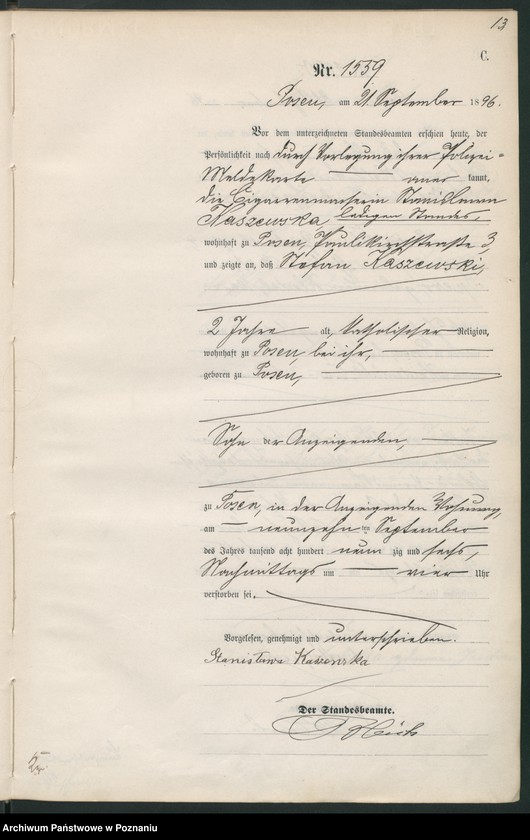 13
C.
Nr. 1559
Posen, am 21. September 1896.
Vor dem unterzeichneten Standesbeamten erschien heute, der
Persönlichkeit nach durch Vorlegung ihrer Polizei=
Meldekarte aner kannt,
die Cigarrenmacherin Stanislawa
Kaszewska, ledigen Standes,
wohnhaft zu Posen, Paulikirchstraße 3
und zeigte an, daß Stefan Kaszewski,
2 Jahre alt, katholischer Religion,
wohnhaft zu Posen, bei ihr,
geboren zu Posen,
Sohn der Anzeigenden,
zu Posen, in der Anzeigenden Wohnung,
am neunzehn ten September
des Jahres tausend acht hundert neun zig und sechs,
Nachmittags um vier Uhr
verstorben sei.
Vorgelesen, genehmigt und unterschrieben.
Stanisława Kaszewska
Der Standesbeamte.
Archiwum Państwowe w Poznaniu